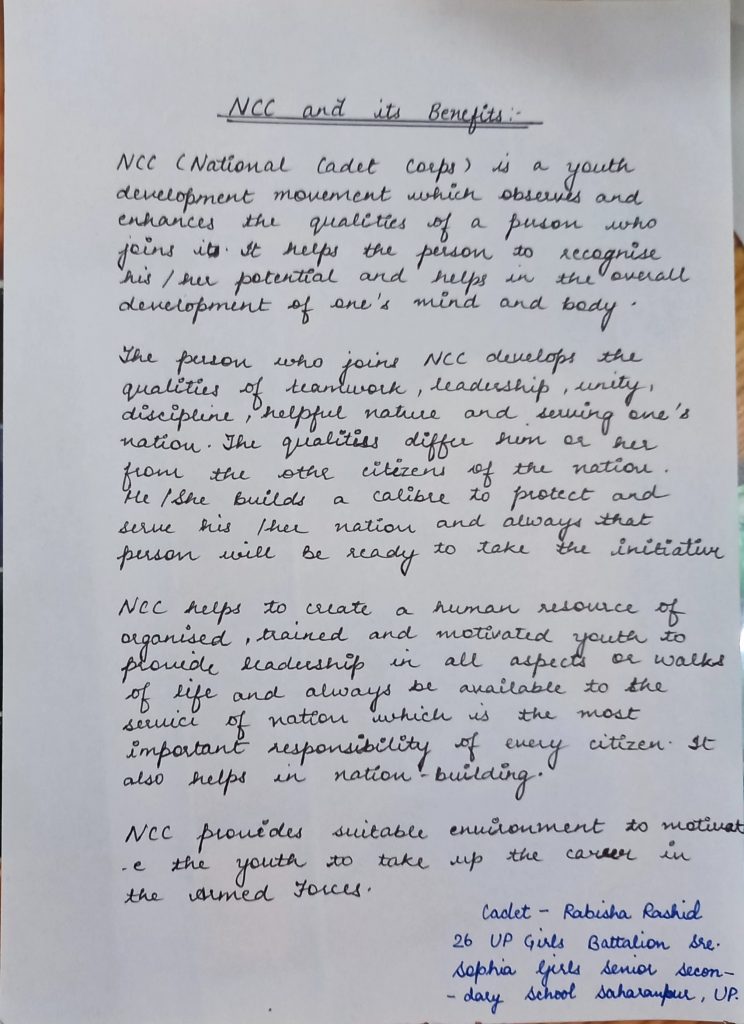 NCC and its Benefits:-
NCC (National Cadet Corps) is a youth
development movement which observes and
enhances the qualities of a person who
joins it. It helps the person to recognise
his/her potential and helps in the overall
development of one's mind and body.
The person who joins NCC develops the
qualities of teamwork, leadership, unity,
discipline, helpful nature and serving one's
nation. The qualities differ him or her
from the othr citizens of the nation.
He/She builds a calibre to protect and
serve his/her nation and always that
person will be ready to take the initiative
NCC helps to create a human resource of
organised, trained and motivated youth to
provide leadership in all aspects or walks
of life and always be available to the
service of nation which is the most
important responsibility of every citizen. It
also helps in nation-building.
NCC provides suitable environment to motivat
-e the youth to take up the career in
the Armed Forces.
Cadet - Rabisha Rashid
26 UP Girls Battalion Sre.
Sophia Girls Senior Secon-
-dary School Saharanpur, UP.